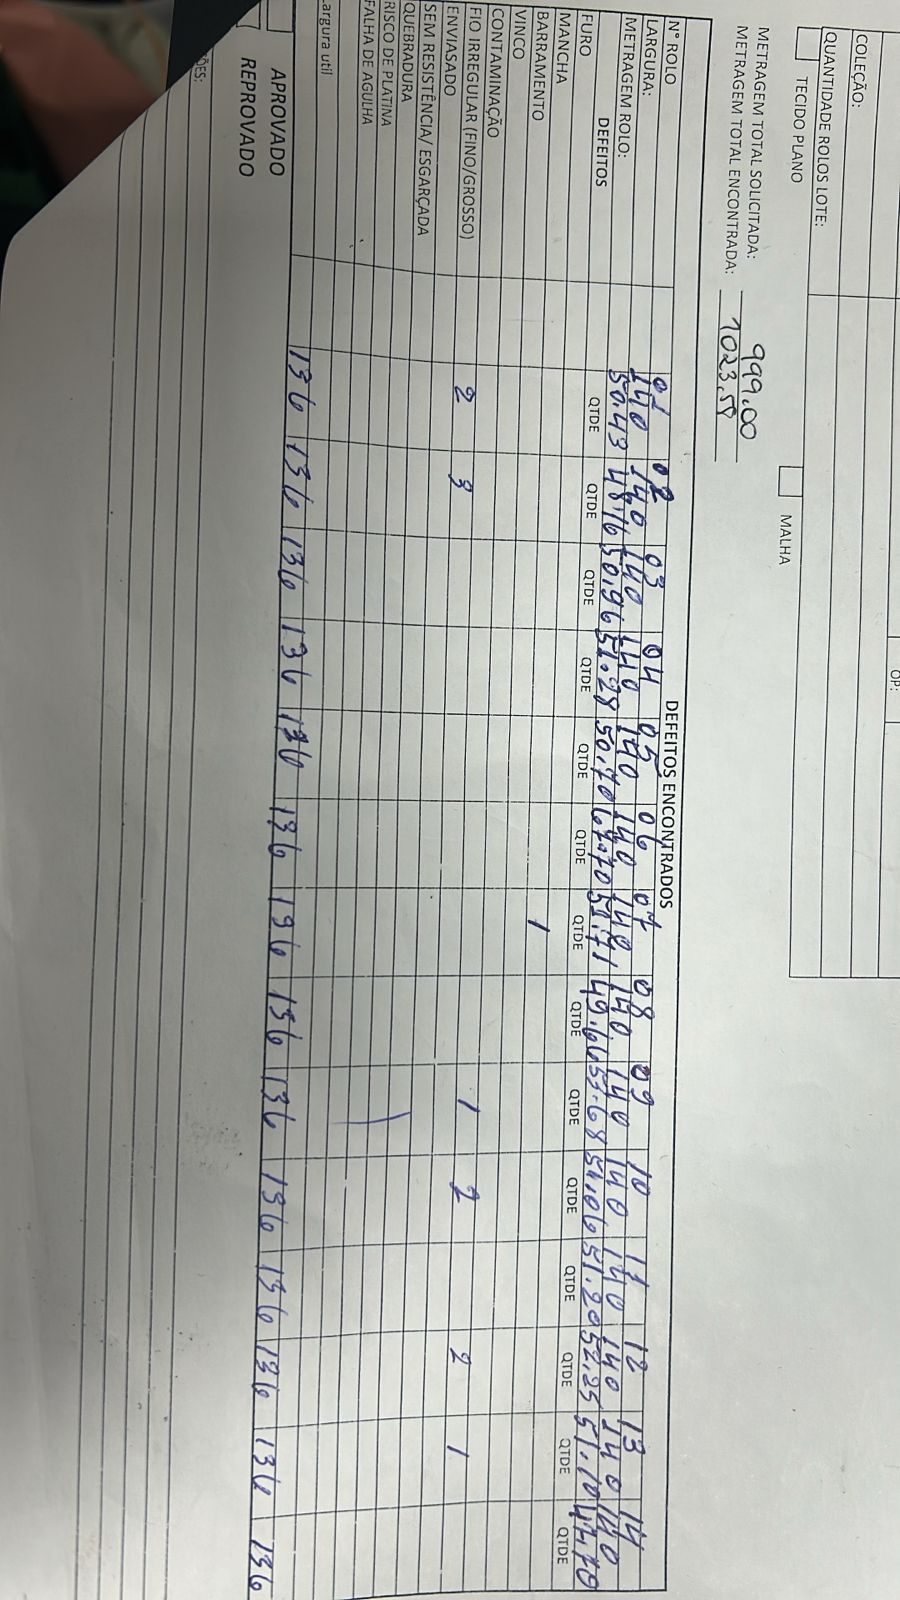 OP:
COLEÇÃO:
QUANTIDADE ROLOS LOTE:
TECIDO PLANO MALHA
METRAGEM TOTAL SOLICITADA: 999.00
METRAGEM TOTAL ENCONTRADA: 1023.59
DEFEITOS ENCONTRADOS
N° ROLO 01 02 03 04 05 06 07 08 09 10 11 12 13 14
LARGURA: 140 140 140 140 140 140 140 140 140 140 140 140 140 140
METRAGEM ROLO: 50.43 48.16 50.96 51.28 50.70 49.66 51.20 52.25 51.10
DEFEITOS QTDE QTDE QTDE QTDE QTDE QTDE QTDE QTDE QTDE QTDE QTDE QTDE QTDE QTDE
FURO
MANCHA
BARRAMENTO 1
VINCO
CONTAMINAÇÃO
FIO IRREGULAR (FINO/GROSSO) 2 3 1 2 2 1
ENVIASADO
SEM RESISTÊNCIA/ ESGARÇADA
QUEBRADURA
RISCO DE PLATINA
FALHA DE AGULHA
argura util
136 136 136 136 136 136 136 136 136 136 136 136 136 136
APROVADO
REPROVADO
ÕES: